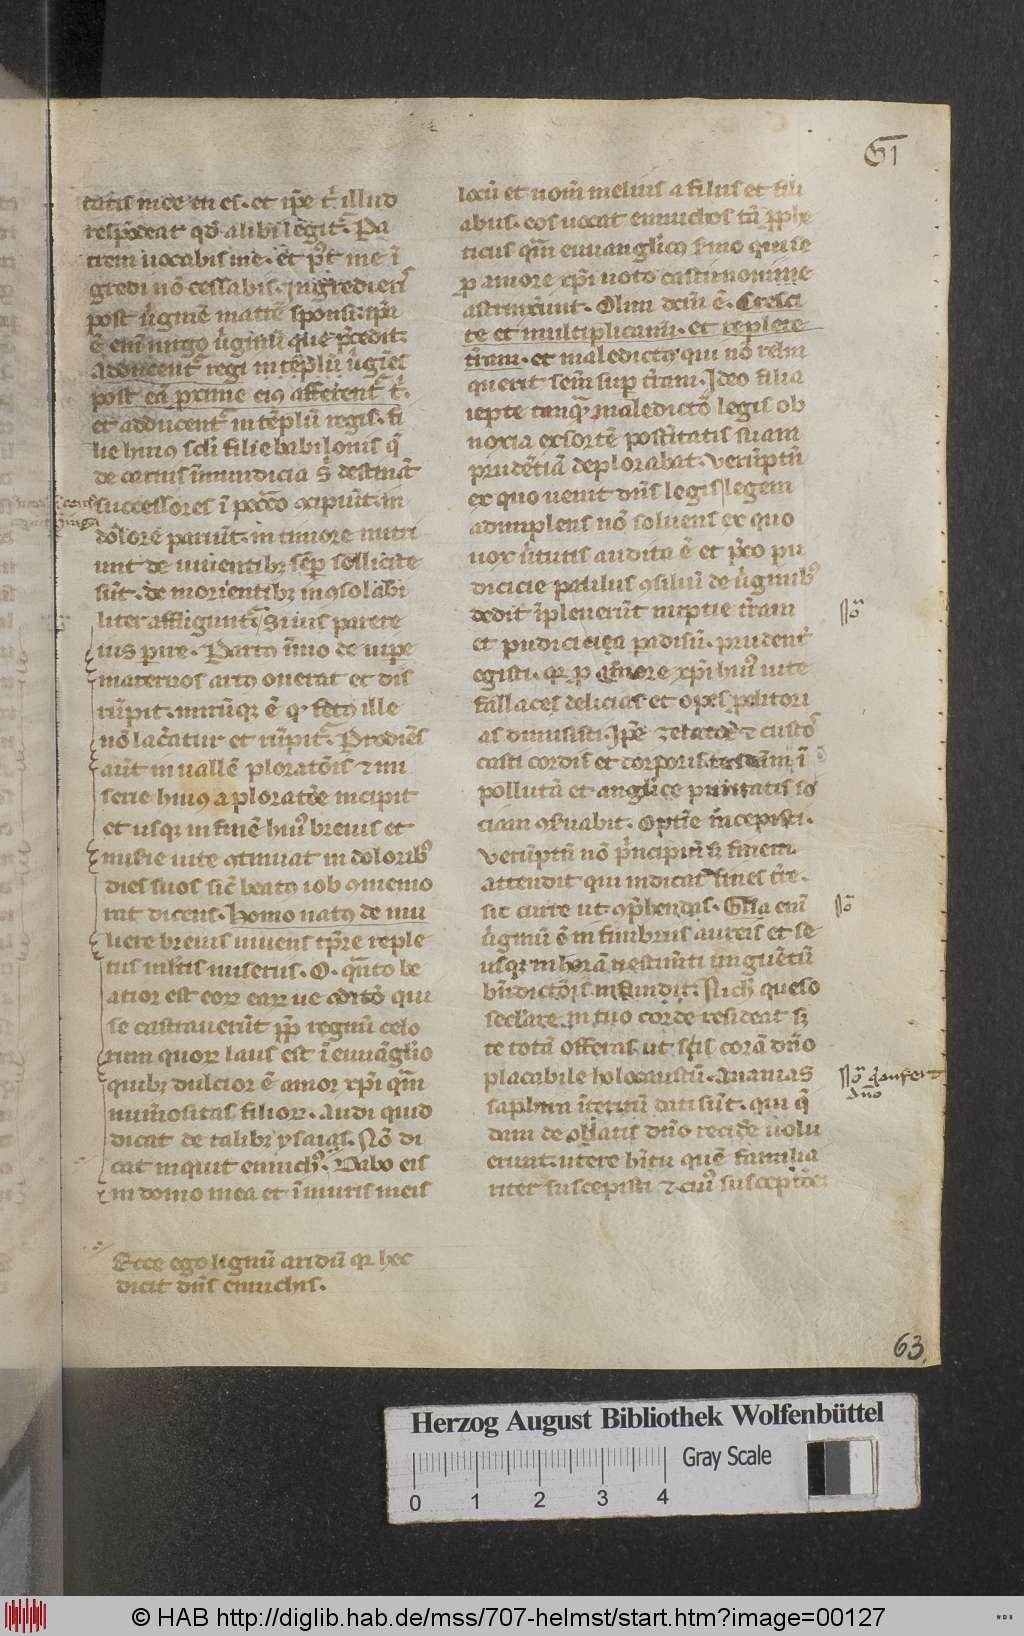 61
tatis mee tu es. et ip̄e t͛ illud
respōdeat qd̄ alibi legit᷑. Pa
trem uocabis me. et pꝰt me ī
gredi nō cessabis. Ingredieris
post ūginē matrē sponsi. ip̄a
ē eni uirgo ūginū que p̄cedit.
Adducent᷑ regi in tēplū ūgīes
post eā proxime eiꝰ afferent᷑ t͛.
et adducent᷑ in tēplū regis. fi
lie huiꝰ scłi filie babilonis q̄
de carnis īmundicia
successores ī pccō ꝯcipiūt. in
dolore pariūt. in timore nutri
unt de uiuentibꝫ sēp sollicite
sūt. de morientibꝫ inꝯsolabi
liter affligunt᷑. Si uis parere
uis perire. Partꝰ īmo de uipe
maternos artꝰ onerat et dis
rūpit. mirūqꝫ ē qꝰ fetꝰ ille
nō lac̄atur et rūpit᷑. Prodiēs
aūt in uallē ploratōis ⁊ mi
serie huiꝰ a ploratōe incipit
et usqꝫ in finē huiꝰ breuis et
misie uite ꝯtinuat in doloribꝰ
dies suos sic̄ beatꝰ iob ꝯmemo
rat dicens. Homo natꝰ de mu
liere breuis uiuens tp̄re reple
tus mltis miseriis. O. qūto be
atior est eoꝝ eaꝝ ue ꝯditō qui
se castrauerūt ꝓpt̄ regnū celo
rum quoꝝ laus est ī euuāglio
quibꝫ dulcior ē amor xp̄i qm̄
numositas filioꝝ. Audi quid
dicat de talibꝫ ysaias. Nō di
cat inquit eunuchꝰ. Dabo eis
in domo mea et ī muris meis
Ecce ego lignū aridū qꝛ hec
dicit dn̄s eunuchis.
locū et nom̄ melius a filiis et fili
abus. eos uocat eunuchos tā ꝓphe
ticus qm̄ euuanglicꝰ sermo qui se
ꝓ amore xp̄i uoto castimonie
astrinxerunt. Olim dcm̄ ē. Cresci
te et multiplicamī. et replete
tr̄am. et maledictꝰ qui nō relin
querit sem̄ sup tr̄am. Ideo filia
iepte tanqꝫ maledictō legis ob
noxia exsortē postitatis suam
prudētiā deplorabat. Verūptn̄
ex quo uenit dn̄s legis legem
adimplens nō soluens ex quo
uox ūtutis audita ē et p̄co pu
dicicie paulus ꝯsiliū de ūginibꝰ
dedit īpleuerūt nuptie tr̄am
et pudicicia padisū. prudent̄
egisti. qꝛ ꝓ amore xp̄i huiꝰ uite
fallaces delicias et opes peritori
as dimisisti. Ip̄e zelator ⁊ custos
casti cordis et corporis ī
pollutā et anglice puritatis so
ciam ꝯseruabit. Optīe incepisti.
Verūptn̄ nō p̄ncipiū sꝫ finem
attendit qui iudicat fines tr̄e.
sic curre ut ꝯp̄hendas. Glīa enī
ūginū ē in fimbriis aureis et se
usqꝫ in horā uestimti unguētū
bn̄dictōis infundit. Nich queso
scelare in tuo corde resideat sꝫ
te totā offeras. ut scīs corā dn̄o
placabile holocaustū. Ananias
saphira ītitū dati sūt. qui q̄
dam de oblatis dn̄o recidē uolu
erunt. utere bn̄ tu quē familia
riter suscepisti ⁊
Nō
Nō
Nō q̄ aufert
dn̄o
63.
Herzog August Bibliothek Wolfenbüttel
Gray Scale
0 1 2 3 4
© HAB http://diglib.hab.de/mss/707-helmst/start.htm?image=00127